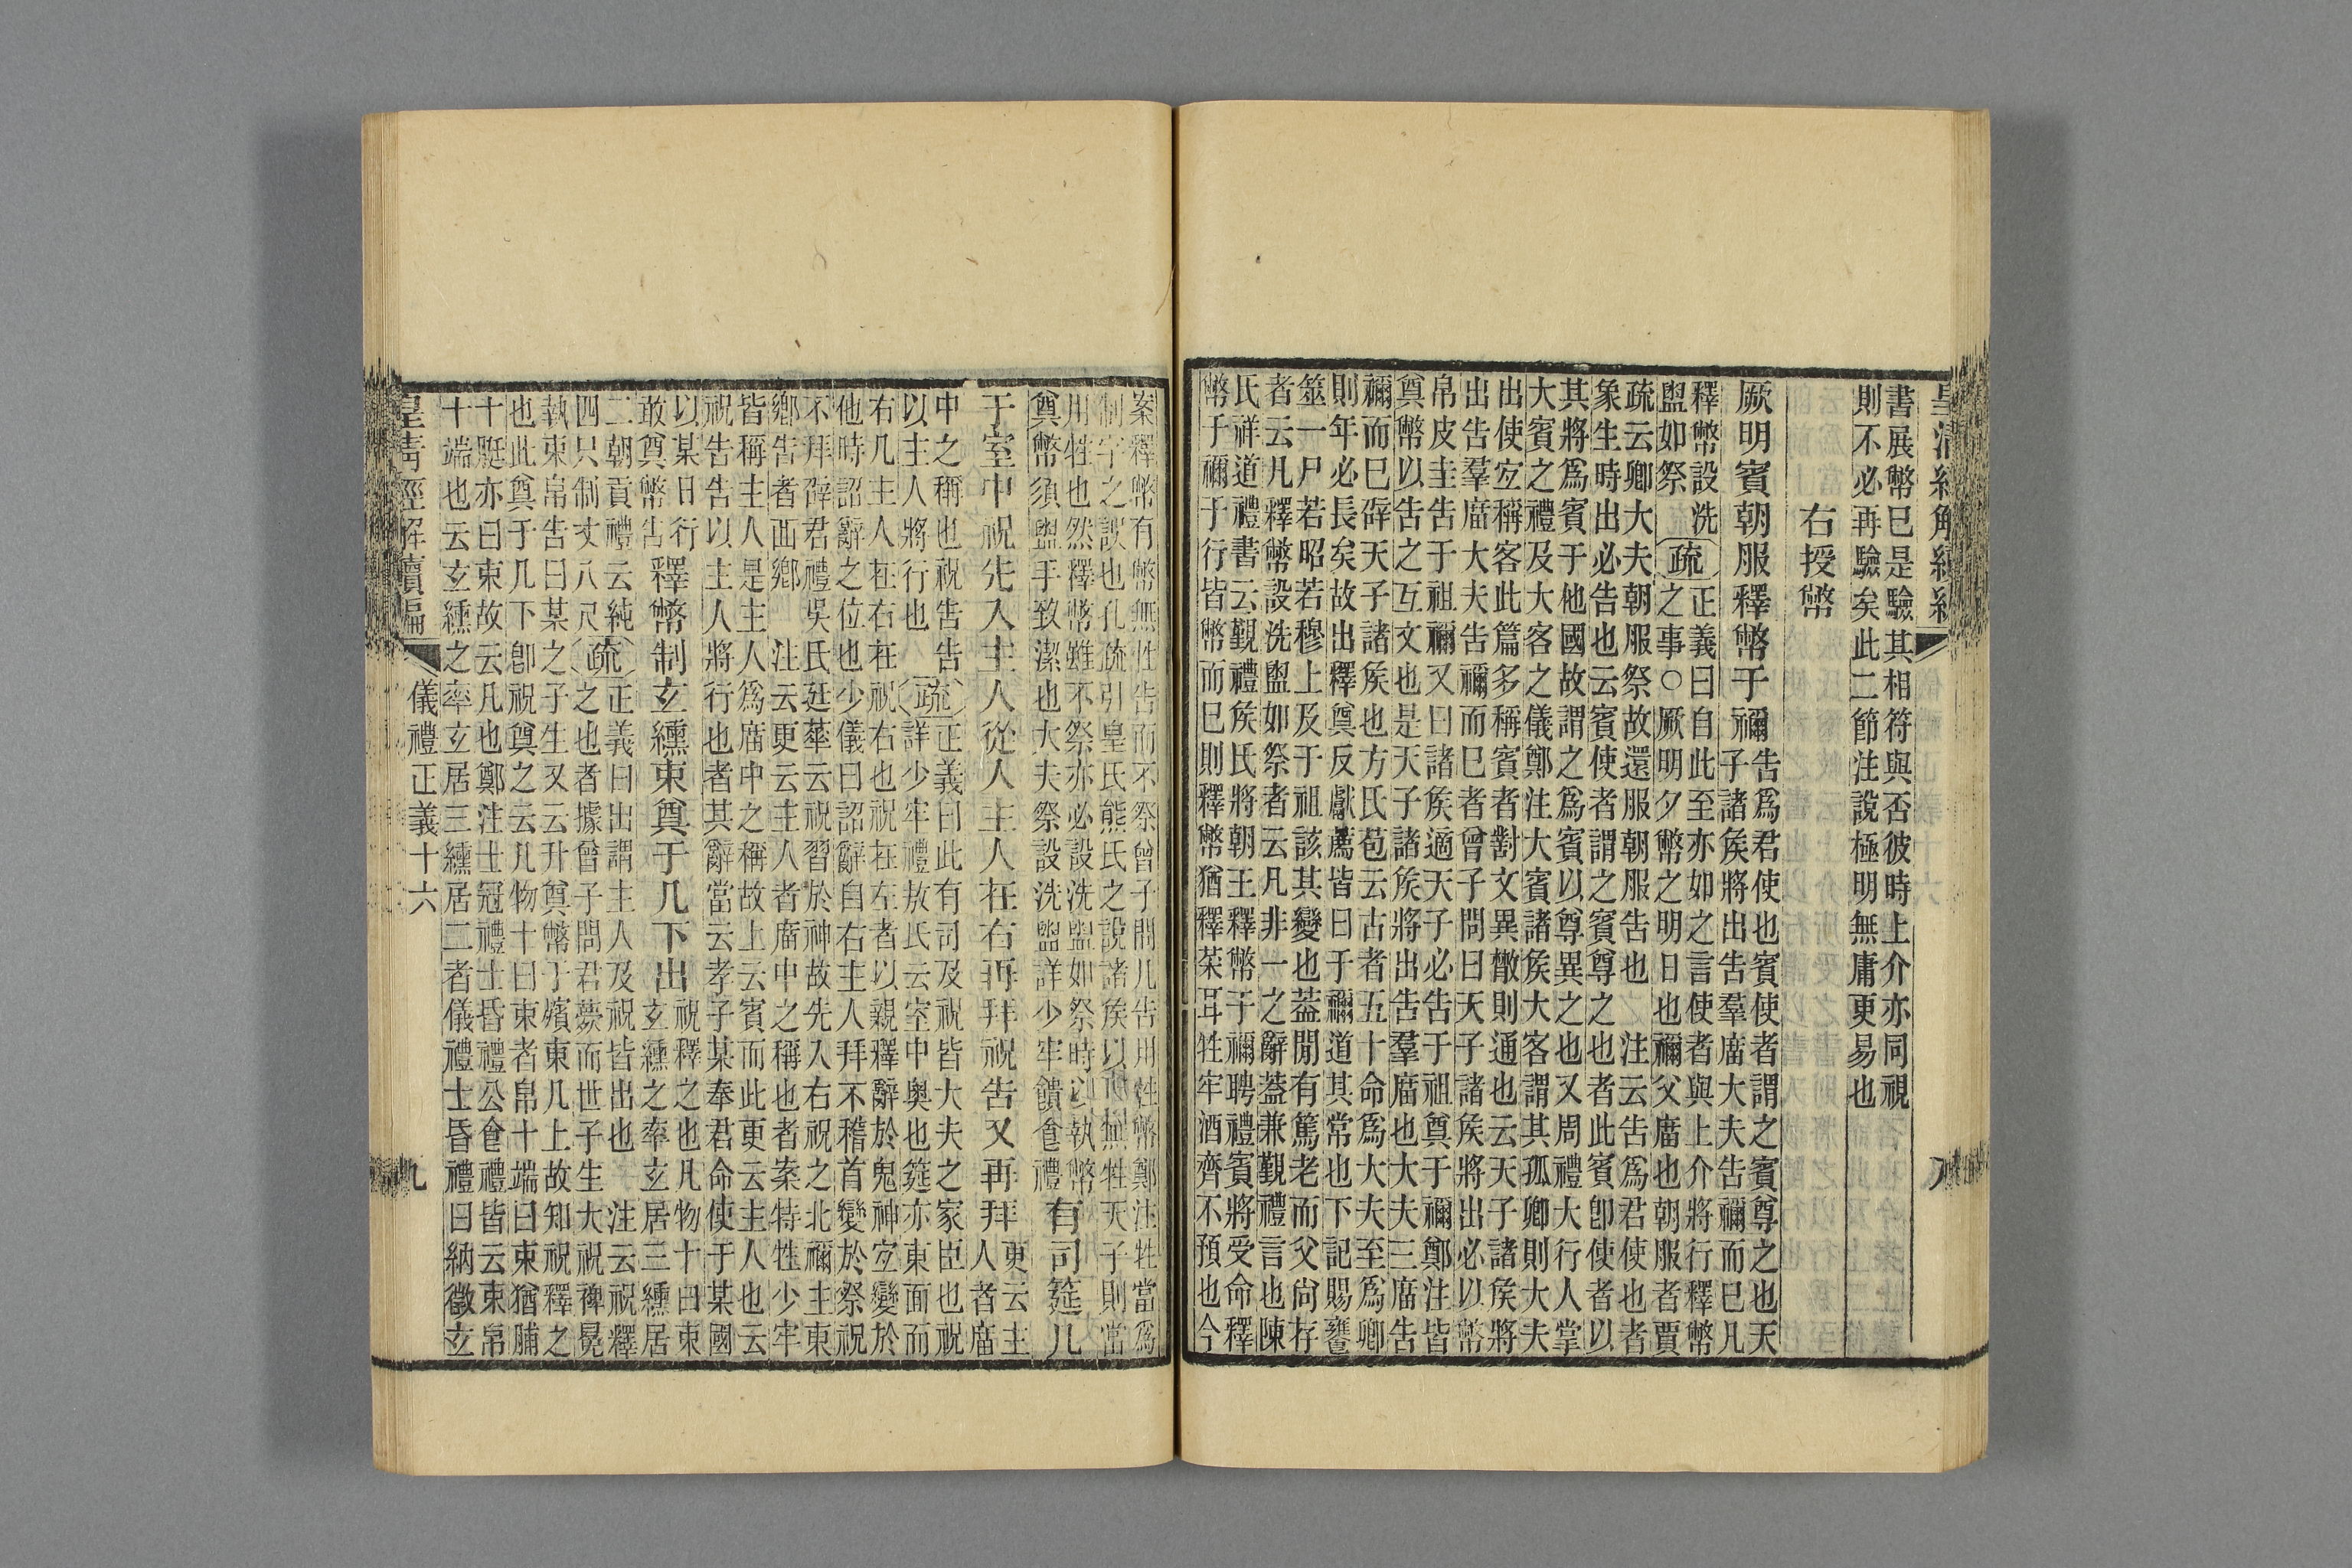 皇清經解續編
八
書展幣巳是驗其相符與否彼時上介亦同視
則不必再驗矣此二節注說極明無庸更易也
右授幣
厥明賓朝服釋幣于禰
告爲君使也賓使者謂之賓尊之也天
子諸矦將出告羣庿大夫告禰而巳凡
釋幣設洗
盥如祭
疏
正義曰自此至亦如之言使者與上介將行釋幣
之事○厥明夕幣之明日也禰父庿也朝服者賈
疏云卿大夫朝服祭故還服朝服告也 注云告爲君使也者
象生時出必告也云賓使者謂之賓尊之也者此賓卽使者以
其將爲賓于他國故謂之爲賓以尊異之也又周禮大行人掌
大賓之禮及大客之儀鄭注大賓諸矦大客謂其孤卿則大夫
出使宐稱客此篇多稱賓者對文異散則通也云天子諸矦將
出告羣庿大夫告禰而巳者曾子問曰天子諸矦將出必以幣
帛皮圭告于祖禰又曰諸矦適天子必告于祖奠于禰鄭注皆
奠幣以告之互文也是天子諸矦將出告羣庿也大夫三庿告
禰而巳辟天子諸矦也方氏苞云古者五十命爲大夫至爲卿
則年必長矣故出釋奠反獻薦皆曰于禰道其常也下記賜饔
筮一尸若昭若穆上及于祖該其變也葢閒有篤老而父尙存
者云凡釋幣設洗盥如祭者云凡非一之辭葢兼覲禮言也陳
氏祥道禮書云覲禮矦氏將朝王釋幣于禰聘禮賓將受命釋
幣于禰于行皆幣而巳則釋幣猶釋菜耳牲牢酒齊不預也今
案釋幣有幣無牲告而不祭曾子問凡告用牲幣鄭注牲當爲
制字之誤也孔疏引皇氏熊氏之說諸矦以下無牲天子則當
用牲也然釋幣雖不祭亦必設洗盥如祭時以執幣
奠幣須盥手致潔也大夫祭設洗盥詳少牢饋食禮
有司筵几
于室中祝先入主人從入主人在右再拜祝告又再拜
更云主
人者庿
中之稱也祝告告
以主人將行也
疏
正義曰此有司及祝皆大夫之家臣也祝
詳少牢禮敖氏云室中奧也筵亦東面而
右几主人在右在祝右也祝在左者以親釋辭於鬼神宐變於
他時詔辭之位也少儀曰詔辭自右主人拜不稽首變於祭祝
不拜辟君禮吳氏廷華云祝習於神故先入右祝之北禰主東
鄉告者西鄉 注云更云主人者庿中之稱也者案特牲少牢
皆稱主人是主人爲庿中之稱故上云賓而此更云主人也云
祝告告以主人將行也者其辭當云孝子某奉君命使于某國
以某日行
敢奠幣告
釋幣制玄纁束奠于几下出
祝釋之也凡物十曰束
玄纁之率玄居三纁居
二朝貢禮云純
四只制丈八尺
疏
正義曰出謂主人及祝皆出也 注云祝釋
之也者據曾子問君薨而世子生大祝裨冕
執束帛告曰某之子生又云升奠幣于殯東几上故知祝釋之
也此奠于几下卽祝奠之云凡物十曰束者帛十端曰束猶脯
十脡亦曰束故云凡也鄭注士冠禮士昏禮公食禮皆云束帛
十端也云玄纁之率玄居三纁居二者儀禮士昏禮曰納徵玄
皇清經解續編
儀禮正義十六
九